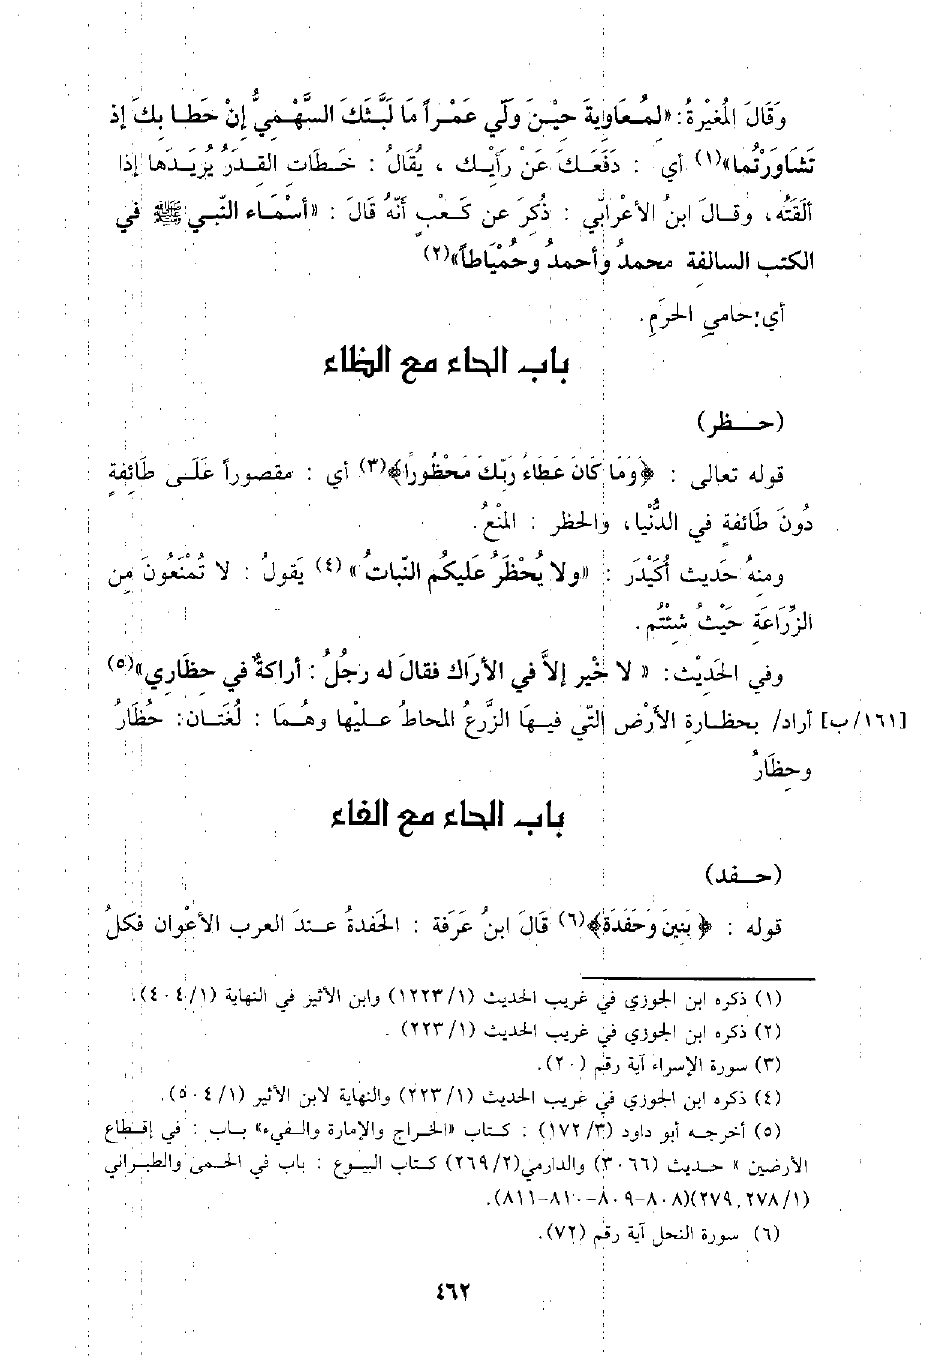 وَقَالَ المُغيْرةُ: «لمُعَاويةَ حيْـنَ وَلّي عَمْـراً مَا لَبَّثَكَ السَّهْـميُّ إنْ حَطـا بِكَ إذ
تَشَاوَرْتُما»(١) أي : دَفَعَـكَ عَنْ رَأَيْـك ، يُقَالُ : حَـطَات القِـدَرُ بِزَبَـدَها إذا
ألقَتُه، وقـالَ ابنُ الأعْرابي : ذُكرَ عن كَـعْبٍ أنَّهُ قَالَ : «أسْمَـاء النّبي ﷺ في
الكتب السالفة محمدُ وأحمدُ وحُمْيَاطاً»(٢)
أي:حامي الحرَمِ.
باب الحاء مع الظاء
(حـــظر)
قوله تعالى : ﴿وَمَا كَانَ عَطَاءُ رَبِّكَ مَحْظُورًا﴾(٣) أي : مقصوراً عَلَـى طَائِفةٍ
دُونَ طَائفةٍ في الدُّنْيا، والحظر : المنْعُ.
ومنهُ حَديث أُكَيْدَر : «ولا يُحْظَرُ عَليكُم النّباتُ» (٤) يَقولُ : لا تُمْنَعُونَ مِن
الزِّرَاعَةِ حَيْثُ شِئْتُم.
وفي الحَديْث: « لا خْير إلاَّ في الأرَاك فقالَ له رجُلُ : أراكةٌ في حظَاري»(٥)
[١٦١/ب] أراد/ بحظـارة الأرْض الَّتي فيـهَا الزَّرعُ المحاطُ عـليْها وهُـمَا : لُغَتَـان: حُظَارُ
وحِظَارُ
باب الحاء مع الفاء
(حـــفد)
قوله : ﴿ بَنِينَ وَحَفَدَةً﴾(٦) قَالَ ابنُ عَرَفة : الحَفدةُ عـندَ العرب الأعْوان فكلُ
(١) ذكره ابن الجوزي في غريب الحديث (١/ ١٢٢٣) وابن الأثير في النهاية (١/ ٤٠٤).
(٢) ذكره ابن الجوزي في غريب الحديث (١/ ٢٢٣) .
(٣) سورة الإسراء آية رقم (٢٠).
(٤) ذكره ابن الجوزي في غريب الحديث (١/ ٢٢٣) والنهاية لابن الأثير (١/ ٥٠٤).
(٥) أخرجـه أبو داود (٣/ ١٧٢) : كتاب «الخراج والإمارة والفيء» باب : في إقـطاع
الأرضين » حـديث (٣٠٦٦) والدارمي(٢/ ٢٦٩) كتاب البيوع : باب في الحمى والطبراني
(١/ ٢٧٨، ٢٧٩)(٨٠٨-٨٠٩-٨١٠-٨١١).
(٦) سورة النحل آية رقم (٧٢).
٤٦٢